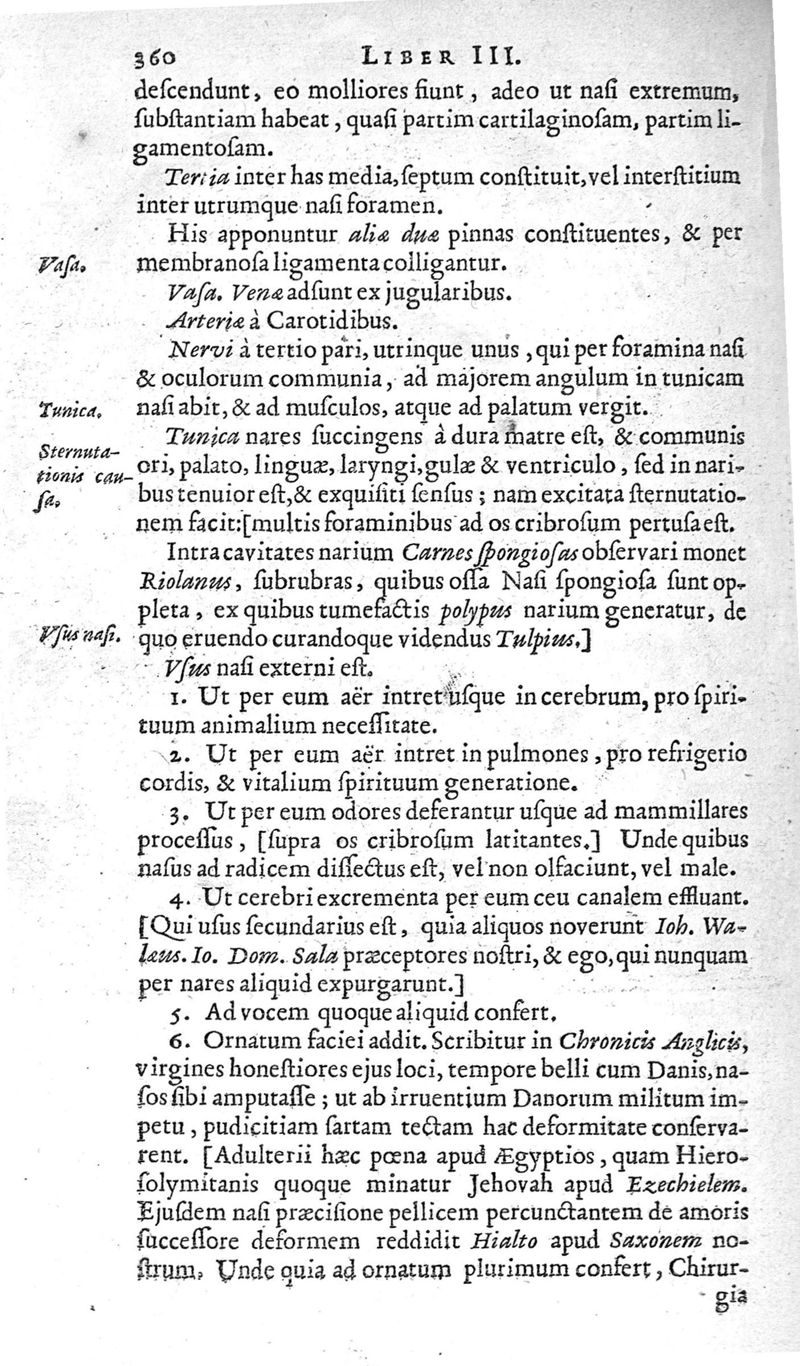 360 LIBER III.
deſcendunt, eo molliores fiunt, adeo ut naſi extremum,
ſubſtantiam habeat, quaſi partim cartilaginoſam, partim li-
gamentoſam.
Tertia inter has media, ſeptum conſtituit, vel interſtitium
inter utrumque naſi foramen.
His apponuntur aliæ duæ pinnas conſtituentes, & per
Vaſa.
membranoſa ligamenta colligantur.
Vaſa. Venæ adſunt ex jugularibus.
Arteriæ à Carotidibus.
Nervi à tertio pari, utrinque unus, qui per foramina naſi
& oculorum communia, ad majorem angulum in tunicam
Tunica.
naſi abit, & ad muſculos, atque ad palatum vergit.
Tunica nares ſuccingens à dura matre eſt, & communis
Sternuta-
tionis cau-
ſa.
ori, palato, linguæ, laryngi, gulæ & ventriculo, ſed in nari-
bus tenuior eſt, & exquiſiti ſenſus; nam excitata ſternutatio-
nem facit: [multis foraminibus ad os cribroſum pertuſa eſt.
Intra cavitates narium Carnes ſpongioſas obſervari monet
Riolanus, ſubrubras, quibus oſſa Naſi ſpongioſa ſunt op-
pleta, ex quibus tumefactis polypus narium generatur, de
Vſus naſi.
quo eruendo curandoque videndus Tulpius.]
Vſus naſi externi eſt.
1. Ut per eum aër intret uſque in cerebrum, pro ſpiri-
tuum animalium neceſſitate.
2. Ut per eum aër intret in pulmones, pro refrigerio
cordis, & vitalium ſpirituum generatione.
3. Ut per eum odores deferantur uſque ad mammillares
proceſſus, [ſupra os cribroſum latitantes.] Unde quibus
naſus ad radicem diſſectus eſt, vel non olfaciunt, vel male.
4. Ut cerebri excrementa per eum ceu canalem effluant.
[Qui uſus ſecundarius eſt, quia aliquos noverunt Ioh. Wa-
læus. Io. Dom. Sala præceptores noſtri, & ego, qui nunquam
per nares aliquid expurgarunt.]
5. Ad vocem quoque aliquid confert.
6. Ornatum faciei addit. Scribitur in Chronicis Anglicis,
virgines honeſtiores ejus loci, tempore belli cum Danis, na-
ſos ſibi amputaſſe; ut ab irruentium Danorum militum im-
petu, pudicitiam ſartam tectam hac deformitate conſerva-
rent. [Adulterii hæc pœna apud Ægyptios, quam Hiero-
ſolymitanis quoque minatur Jehovah apud Ezechielem.
Ejuſdem naſi præciſione pellicem percunctantem de amoris
ſucceſſore deformem reddidit Hialto apud Saxonem no-
ſtrum. Unde quia ad ornatum plurimum confert, Chirur-
gia